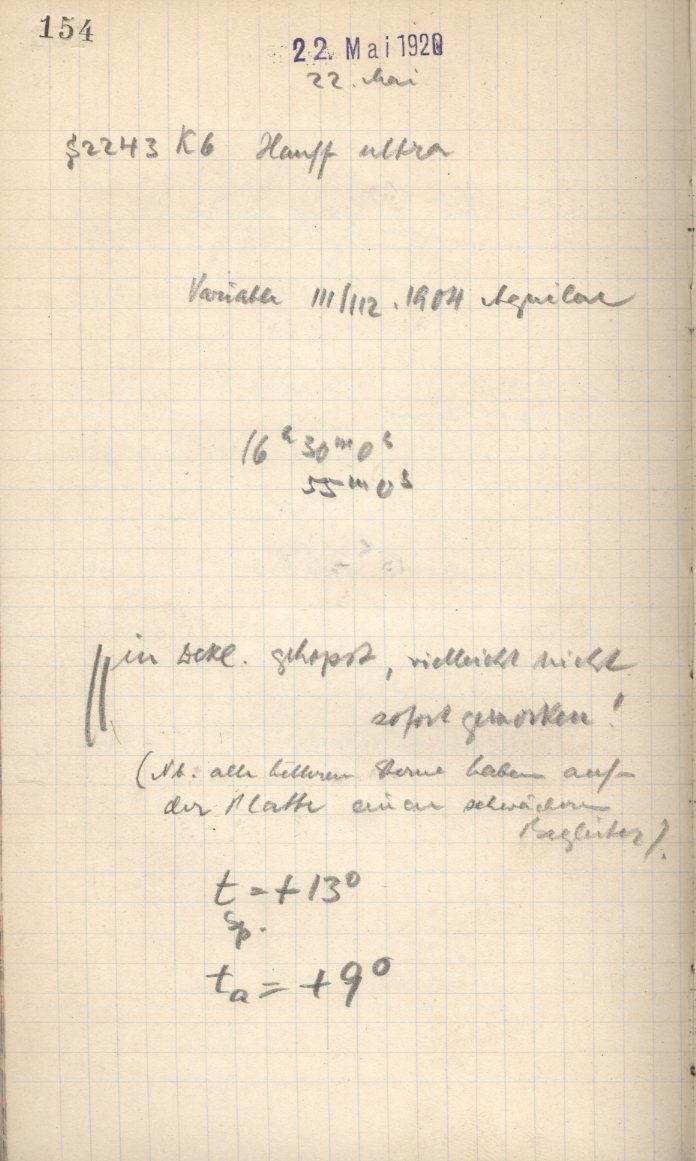 154
22. Mai 1920
22. Mai
2243 K6 Hauff ultra
Variable III/112.1904 Aquilae
16h 30m 0s
55m 0s
in Dekl. gehopst, vielleicht nicht
sofort gemerken!
(Nb. alle helleren Sterne haben auf
der Platte einen schwächeren
Begleiter).
t = + 13°
Sp.
ta = + 9°